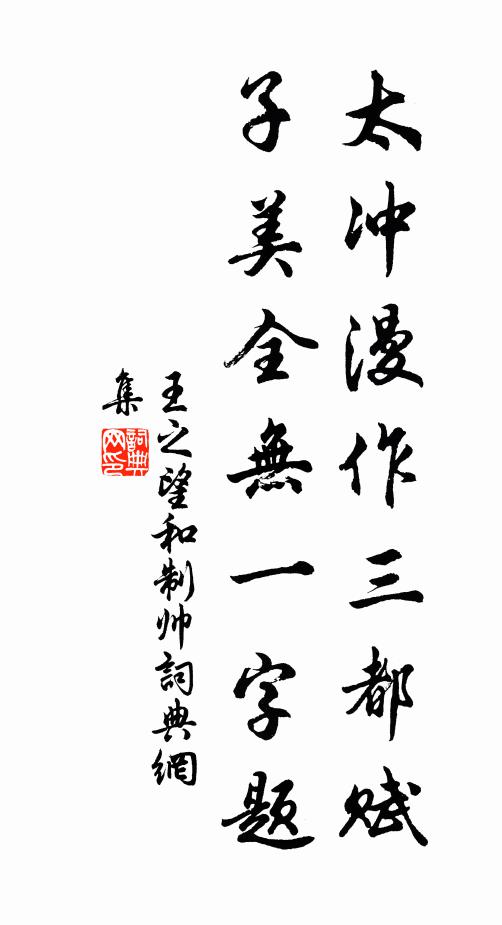 太冲漫作三都赋
子美全無一字题
王之望和制帅詞典網
集
詞典网印